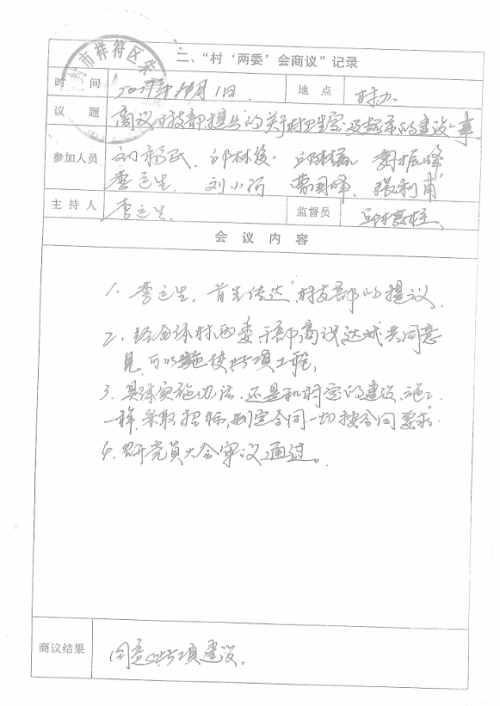 市祥符区朱
二、“村‘两委’会商议”记录
时 间 年 月1日 地 点 村办
议 题 商议村支部提出的关于村卫生室及 的建设事
参加人员 邱林俊
李运生 刘小河
主 持 人 李运生 监督员
会 议 内 容
1、李运生,首先传达村支部的提议。
2、经全体村两委干部商议达成共同意
见,可以施使此项工程。
3、具体实施办法,还是和村室的建设施工
一样,采取招标,制定合同一切按合同要求.
4、召开党员大会审议通过。
商议结果 同意此项建设。